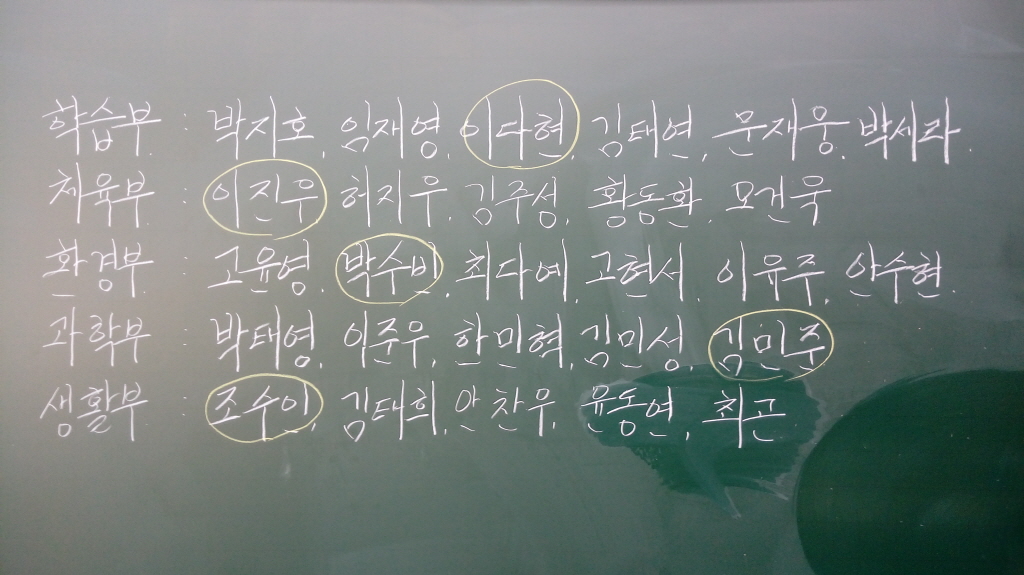 학습부 : 박지호, 임재영, 이다현, 김태연, 문재웅, 박세라.
체육부 : 이진우, 허지우, 김주성, 황동환, 모건욱
환경부 : 고윤영, 박수빈, 최다예, 고현서, 이유주, 안수현.
과학부 : 박태영, 이준우, 한민혁, 김민성, 김민준
생활부 : 조수인, 김태희, 안찬우, 윤동연, 최곤